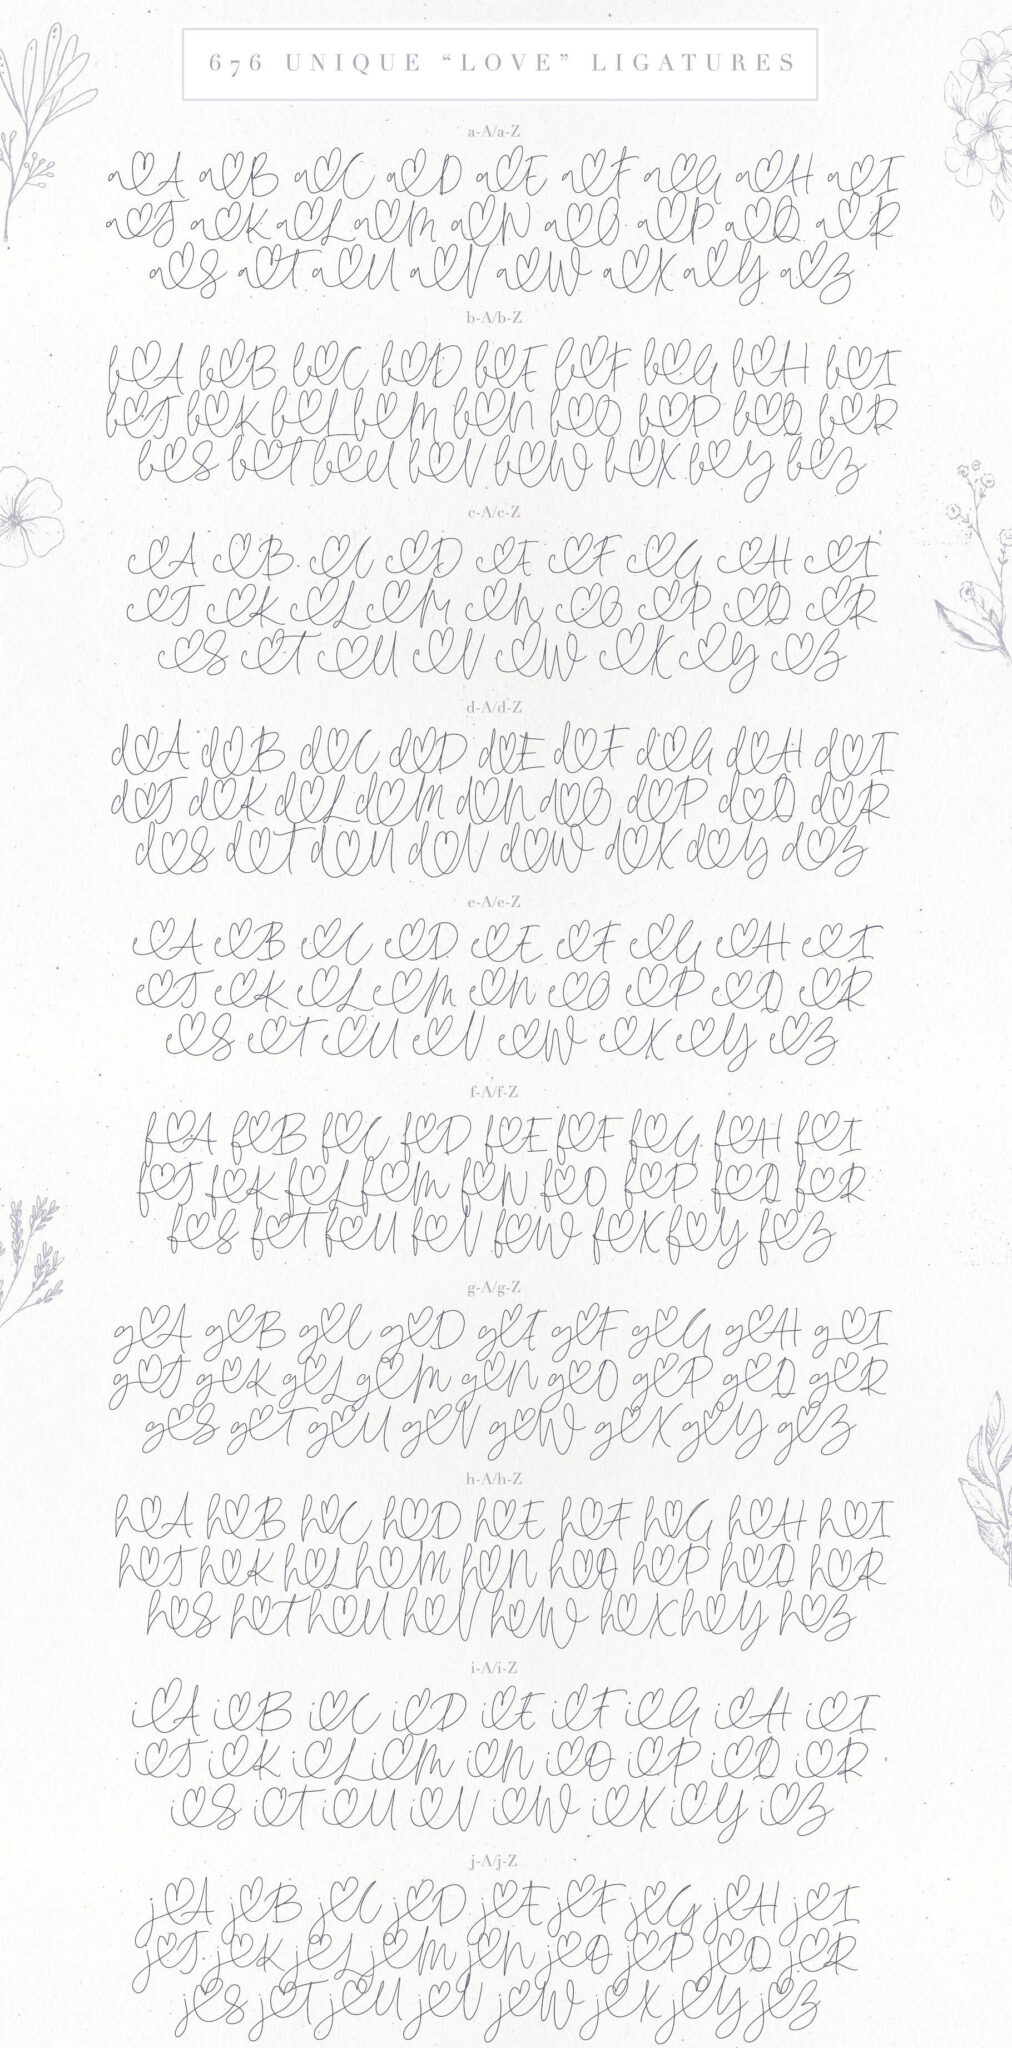 676 UNIQUE “LOVE” LIGATURES
a-A/a-Z
a♡A a♡B a♡C a♡D a♡E a♡F a♡G a♡H a♡I
a♡J a♡K a♡L a♡M a♡N a♡O a♡P a♡Q a♡R
a♡S a♡T a♡U a♡V a♡W a♡X a♡Y a♡Z
b-A/b-Z
b♡A b♡B b♡C b♡D b♡E b♡F b♡G b♡H b♡I
b♡J b♡K b♡L b♡M b♡N b♡O b♡P b♡Q b♡R
b♡S b♡T b♡U b♡V b♡W b♡X b♡Y b♡Z
c-A/c-Z
c♡A c♡B c♡C c♡D c♡E c♡F c♡G c♡H c♡I
c♡J c♡K c♡L c♡M c♡N c♡O c♡P c♡Q c♡R
c♡S c♡T c♡U c♡V c♡W c♡X c♡Y c♡Z
d-A/d-Z
d♡A d♡B d♡C d♡D d♡E d♡F d♡G d♡H d♡I
d♡J d♡K d♡L d♡M d♡N d♡O d♡P d♡Q d♡R
d♡S d♡T d♡U d♡V d♡W d♡X d♡Y d♡Z
e-A/e-Z
e♡A e♡B e♡C e♡D e♡E e♡F e♡G e♡H e♡I
e♡J e♡K e♡L e♡M e♡N e♡O e♡P e♡Q e♡R
e♡S e♡T e♡U e♡V e♡W e♡X e♡Y e♡Z
f-A/f-Z
f♡A f♡B f♡C f♡D f♡E f♡F f♡G f♡H f♡I
f♡J f♡K f♡L f♡M f♡N f♡O f♡P f♡Q f♡R
f♡S f♡T f♡U f♡V f♡W f♡X f♡Y f♡Z
g-A/g-Z
g♡A g♡B g♡C g♡D g♡E g♡F g♡G g♡H g♡I
g♡J g♡K g♡L g♡M g♡N g♡O g♡P g♡Q g♡R
g♡S g♡T g♡U g♡V g♡W g♡X g♡Y g♡Z
h-A/h-Z
h♡A h♡B h♡C h♡D h♡E h♡F h♡G h♡H h♡I
h♡J h♡K h♡L h♡M h♡N h♡O h♡P h♡Q h♡R
h♡S h♡T h♡U h♡V h♡W h♡X h♡Y h♡Z
i-A/i-Z
i♡A i♡B i♡C i♡D i♡E i♡F i♡G i♡H i♡I
i♡J i♡K i♡L i♡M i♡N i♡O i♡P i♡Q i♡R
i♡S i♡T i♡U i♡V i♡W i♡X i♡Y i♡Z
j-A/j-Z
j♡A j♡B j♡C j♡D j♡E j♡F j♡G j♡H j♡I
j♡J j♡K j♡L j♡M j♡N j♡O j♡P j♡Q j♡R
j♡S j♡T j♡U j♡V j♡W j♡X j♡Y j♡Z